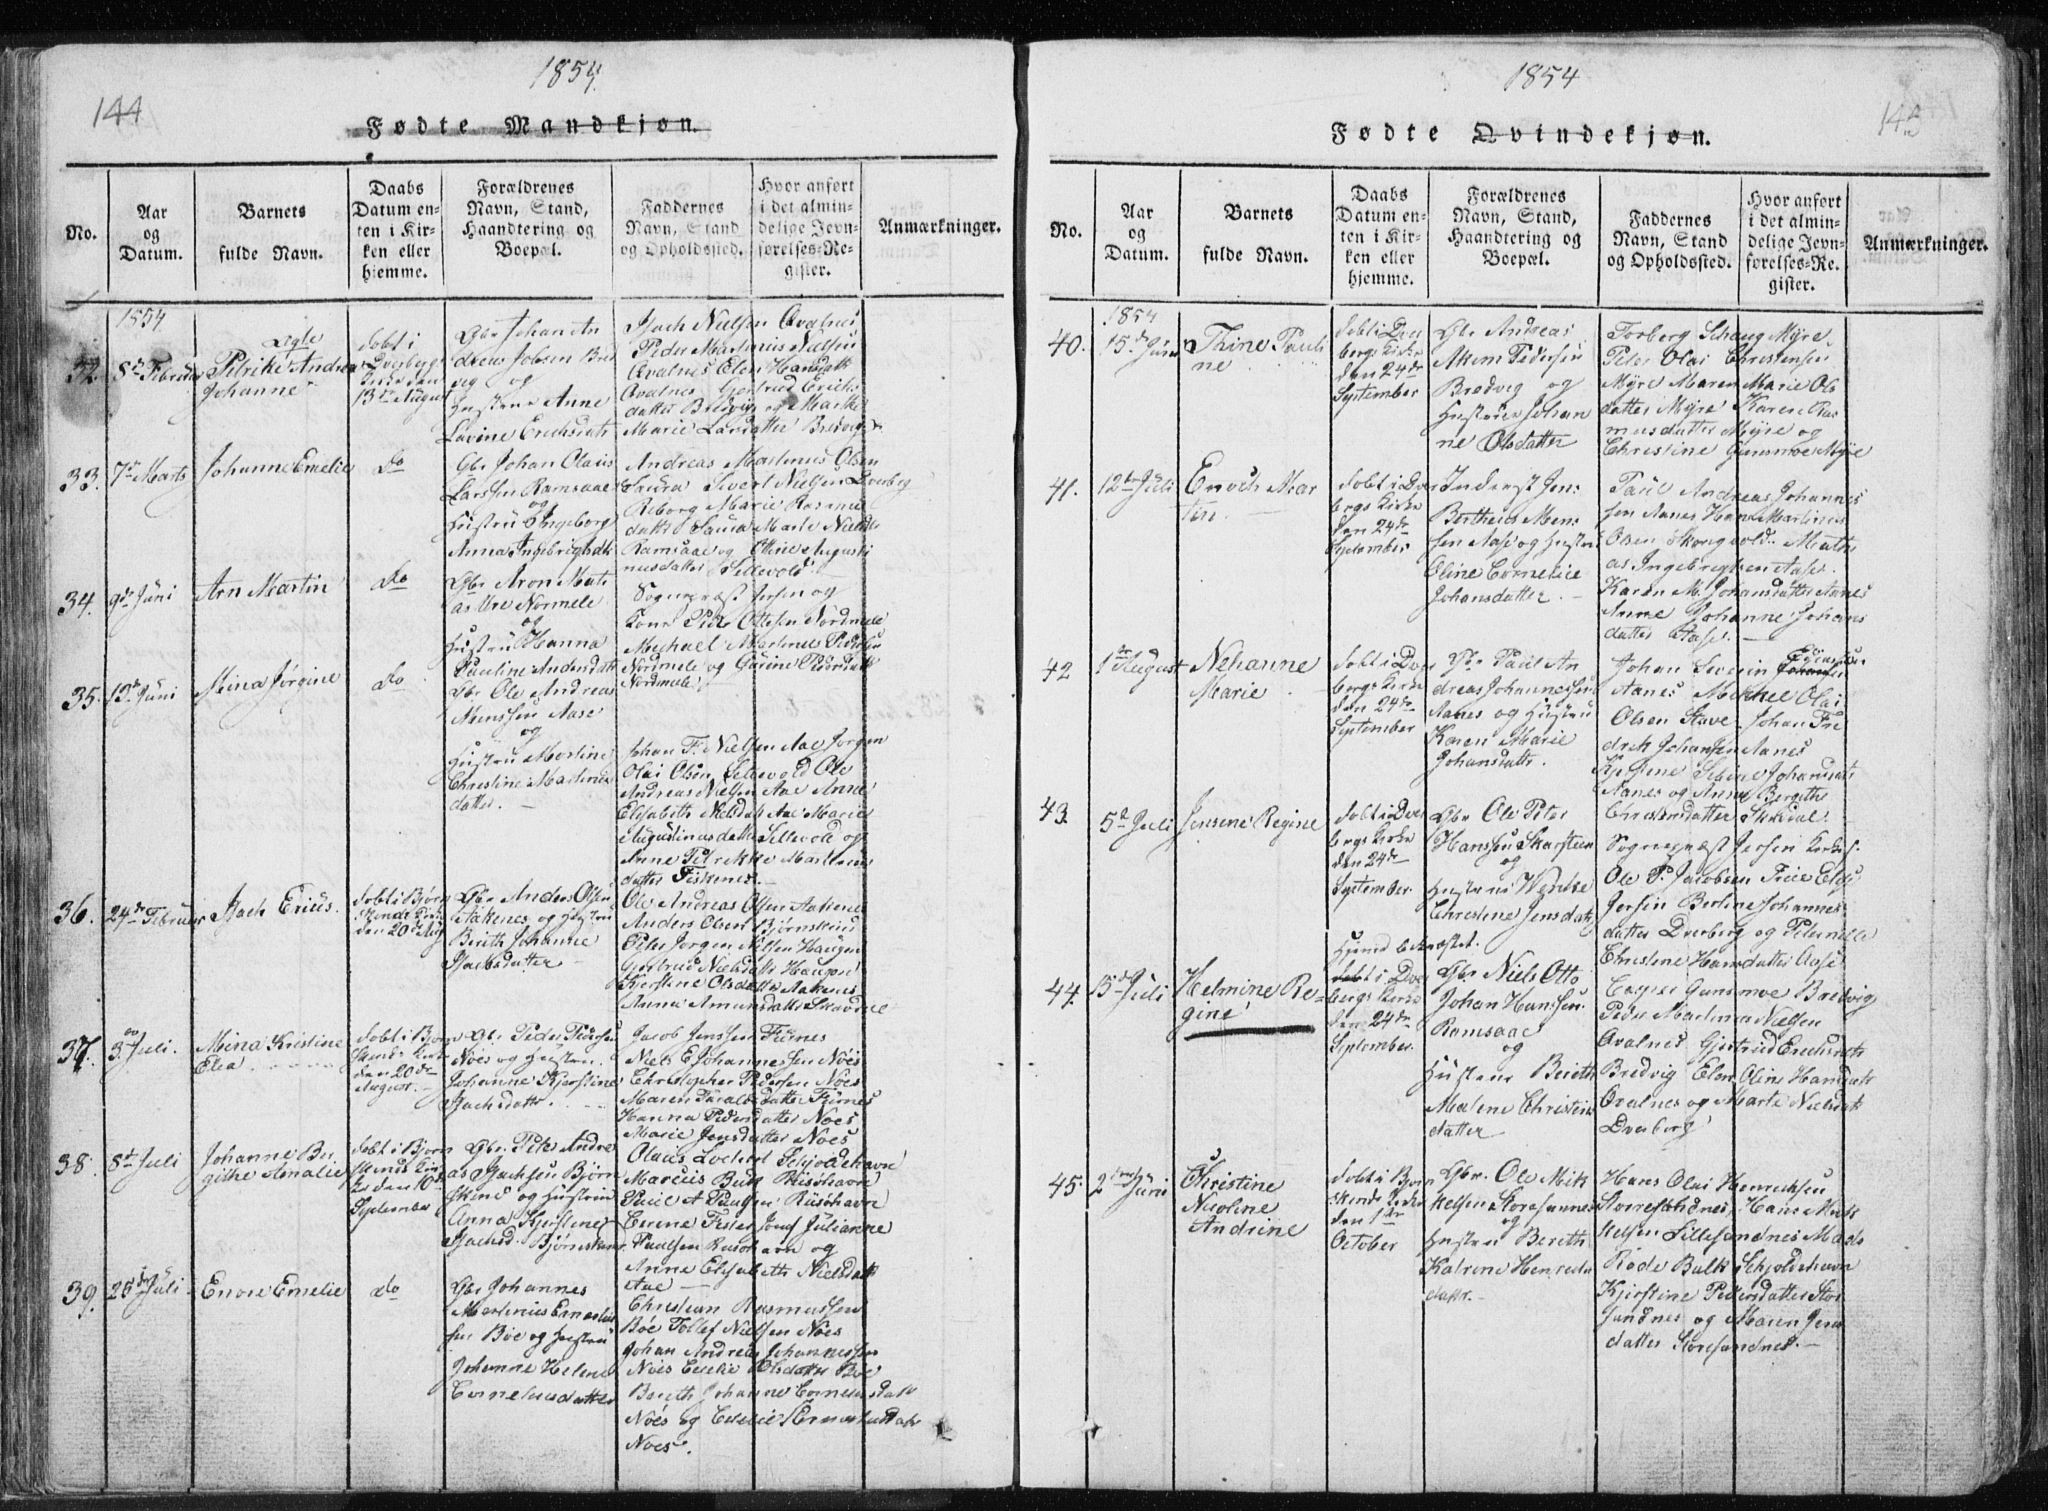 144
1854.
Fødte Mandkjøn.
No.
Aar
og
Datum.
Barnets
fulde Navn.
Daabs
Datum en-
ten i Kir-
ken eller
hjemme.
Forældrenes
Navn, Stand,
Haandtering og
Boepæl.
Faddernes
Navn, Stand
og Opholdssted.
Hvor anført
i det almin-
delige Jevn-
førelses-Re-
gister.
Anmærkninger.
1854
32.
8de Februar
Ægte
Petrike Andrea
Johanne
døbt i
Dverbergs
Kirke den
13de August
Gbr Johan An
dreas Jobsen Bred
vig og
Hustrue Anne
Lavine Erichsdatr
Isach Nielsen Avalnes
Peder Martinus Nielsen
Avalnes Elen Hansdatt
Avalnes Gjertrud Erichs
datter Bredvig og Marthe
Marie Larsdatter Bredvig
33.
7de Marts
Johanne Emelie
do
Gbr Johan Olaus
Larssen Ramsaae
og
Hustru Ingeborg
Anna Ingebrigtsdtr
Andreas Martinus Olsen
Sivert Nielsen Dverberg
Marie Rasmus
datter Marie Nielsd
Ramsaae og Oline Augusti
nusdatter Sellevold
34.
9de Juni
Arn Martin
do
Gbr Aron Mati
as Ure Normele
og
Hustru Hanna
Pauline Andersdatt
Sognepræst Jersin og
Kone Peder Ottesen Nordmele
Michael Martinus Pedersen
Nordmele og Gurine Pedersdatt
Nordmele
35.
13de Juni
Mina Jørgine
do
Gbr Ole Andreas
Monssen Aase
og
Hustru Martine
Christine Martinus
datter.
Johan F. Nielsen Aae Jørgen
Olai Olsen Sellevold Ole
Andreas Nielsen Aae Anne
Elisabeth Nielsdatt Aae Marie
Augustinusdatter Sellevold og
Anne Petrikke Martinus
datter Fiskenes.
36.
24de Februar
Isach Erius.
døbt i Bjørn
skinds Kirke
den 20de Aug
Gbr Anders Olsen
Aakenes og Hustru
Berith Johanne
Isachsdatter
Ole Andreas Olsen Aakenes
Anders Olsen Bjørnskind
Peter Jørgen Nielsen Haugnes
Gjertrud Nielsdatter Haugnes
Kjerstine Olsdatter Aakenes
Anne Amundsdatter Skavdal
37.
3die Juli.
Mina Kristine
Elea
døbt i Bjørn
skinds Kirke
den 20de
August.
Gbr Peder Pedersen
Noes og Hustru
Johanne Kjerstine
Isachsdatter.
Jacob Jenssen Fornes
Niels E Johannessen Noes
Christopher Pedersen Noes
Maren Paralsdatter Fornes
Hanna Pedersdatter Noes
Marie Jensdatter Noes
38.
8de Juli
Johanne Ber
githe Amalie
døbt i Bjørn
skinds Kir
ke den 10de
September
Gbr. Peter Andre
as Isachsen Bjørn
skind og Hustru
Anna Kjerstine
Isachsd. Bjørnskind
Olaus Lockert Skjoldehavn
Marcus Buck Risøhavn
Paul A Paulsen Risøhavn
Emma Jomf Julianne
Paulsen Risøhavn og
Anne Elisabeth Nielsdatt
Aae
39.
26de Juli
Enore Emelie
do
Gbr Johannes
Martinus Cornelius
sen Bøe og Hustru
Johanne Helene
Corneliusdatter
Christian Rasmussen
Bøe Tollef Nielsen Noes
Johan Andreas Johannessen
Noes Emelie Olsdatter Bøe
Bereth Johanne Corneliusdatt
Noes og Emelie Corneliusdatr
Noes.
1854
143
Fødte Qvindekjøn.
No.
Aar
og
Datum.
Barnets
fulde Navn.
Daabs
Datum en-
ten i Kir-
ken eller
hjemme.
Forældrenes
Navn, Stand,
Haandtering og
Boepæl.
Faddernes
Navn, Stand
og Opholdssted.
Hvor anført
i det almin-
delige Jevn-
førelses-Re-
gister.
Anmærkninger.
1854
40.
15de Juni
Thine Pauli
ne
døbt i Dver
bergs Kirke
den 24de
September
Gbr Andreas
Akem Pedersen
Bredvig og
Hustrue Johan
ne Olsdatter
Torberg Schaug Myre
Peter Olai Christensen
Myre Maren Marie Ols
datter Myre Karen Ras
musdatter Myre og
Christine Gunsmoe Myre
41.
12te Juli
Enoch Mar
tin.
døbt i Dver
bergs Kirke
den 24de
September
Inderst Jens
Bertheus Mon
sen Aase og Hustru
Oline Cornelie
Johansdatter.
Paul Andreas Johannes
sen Aanes Hans Martinus
Olsen Skongvold. Mathi
as Ingebrigtsen Aase.
Karen M. Johansdatter Aanes
Anne Johanne Johans
datter Aase.
42
1ste August
Nehanne
Marie
døbt i Dver
bergs Kirke
den 24de
September
Gbr Paul An
dreas Johannessen
Aanes og Hustru
Karen Marie
Johansdatter.
Johan Severin Johansen
Aanes Mikkel Olai
Olsen Stave Johan Fre
drik Johansen Aanes
Kjerstine Sivine Johansdatr
Aanes og Anne Bergithe
Christensdatter Skredal
43.
5te Juli
Jensene Regine
døbt i Dver
bergs Kirke
den 24de
September
Gbr Ole Peter
Hanssen Skarsteen
og
Hustru Wenke
Christine Jensdatr
Sognepræst Jersin Kirkes.
Ole P. Jacobsen Frue Elisa
Jersin Berline Johannes
datter Dverberg og Peternelle
Christine Hansdatter Aase
Hjemd. bekræftet.
44.
15de Juli
Helmine Re-
gine
døbt i Dver
bergs Kirke
den 24de
September.
Gbr Niels Otto
Johan Hanssen
Ramsaae
og
Hustrue Bereth
Malene Christens
datter
Casper Gunsmoe Bredvig
Peder Martinus Nielsen
Avalnes Gjertrud Erichsdatr
Bredvig Elen Oline Hansdatr
Avalnes og Marte Nielsdatr
Dverberg
45.
2den Juni
Christine
Nicoline
Andrine
døbt i Bjørn
skinds Kirke
den 1ste
October
Gbr. Ole Mik
kelsen Storesandnes
og
Hustru Bereth
Katrine Henriks
datter.
Hans Olai Henriksen
Storesandnes Hans Mik
kelsen Lillesandnes Mads
Rode Balk Skjoldehavn
Kjerstine Pedersdatter Stor
sandnes og Maren Jens
datter Storesandnes.